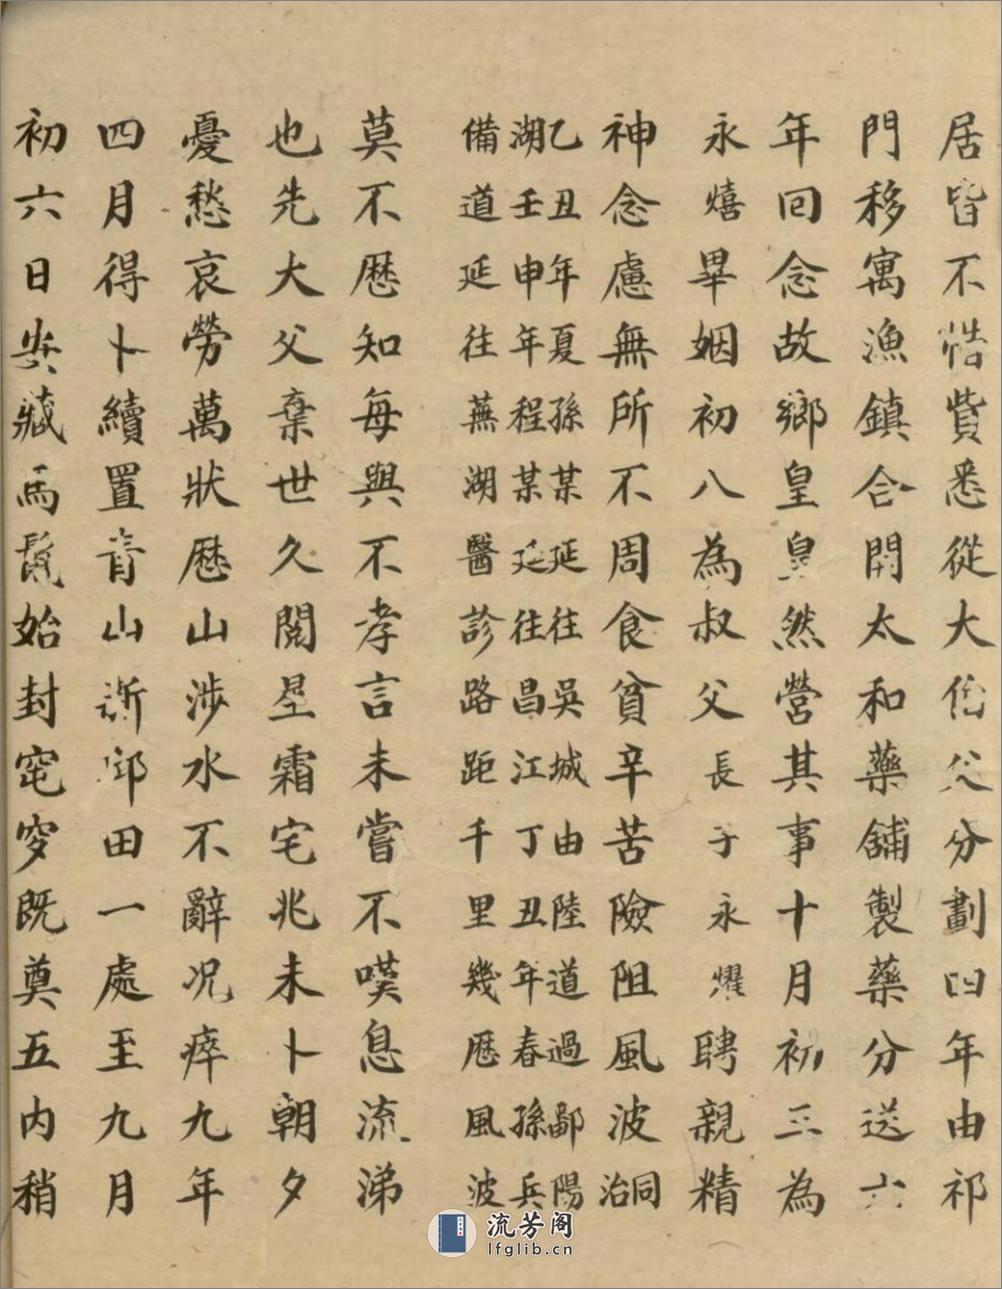 居皆不惜貲悉從大伯父分劃四年由祁
門移寓漁鎮合開太和藥舖製藥分送六
年回念故鄉皇皇然營其事十月初三為
永熺畢姻初八為叔父長子永燿聘親精
神念慮無所不周食貧辛苦險阻風波同治
乙丑年夏孫某延往吳城由陸道過鄱陽
湖壬申年程某延往昌江丁丑年春孫兵
備道延往蕪湖醫診路距千里幾歷風波
莫不歷知每與不孝言未嘗不嘆息流涕
也先大父棄世久閱星霜宅兆未卜朝夕
憂愁哀勞萬狀歷山涉水不辭况瘁九年
四月得卜續置青山斷邱田一處至九月
初六日安藏馬鬛始封窀穸既奠五内稍
流芳阁
lfglib.cn